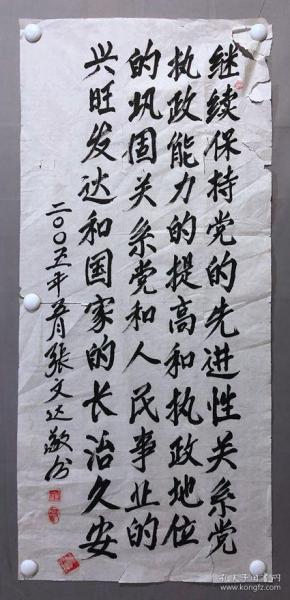 继续保持党的先进性关系党
执政能力的提高和执政地位
的巩固关系党和人民事业的
兴旺发达和国家的长治久安
二〇〇五年五月张文达敬书
孔夫子旧书网
kongfz.com